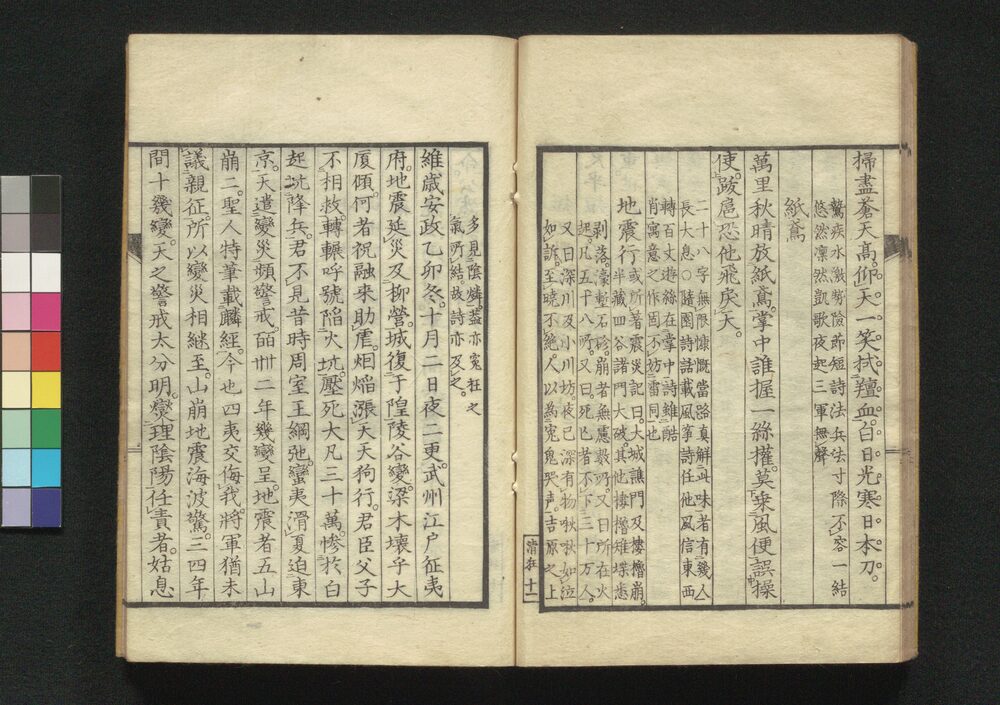 掃盡蒼天高仰天一笑拭羶血白日光寒日本刀
驚疾水激勢險節短詩法兵法寸際不容一結
悠然凜然凱歌夜起三軍無聲
紙鳶
萬里秋晴放紙鳶掌中誰握一絲權莫乘風便誤操
使跋扈恐他飛戾天
二十八字無限慷慨當路真解此味者有幾人
長大息○隨園詩話載風箏詩任他風信東西
轉百丈遊絲在掌中詩雖酷
肖寓意之作固不妨雷同也
地震行或所著震災記曰大城譙門及樓櫓崩
半藏四谷諸門大破其他樓櫓雉堞悉
剥落濠塹石砱崩者無慮數所又曰所在火
起凡五十八所又曰死亡者不下三十万人
又曰深川及小川坊夜已深有物秋秋如泣
如訴至曉不絶人以為寃鬼哭声吉原之上
清狂 十二
多見陰燐蓋亦寃枉之
氣所結故詩亦及之
維歳安政乙卯冬十月二日夜二更武州江戸征夷
府地震延災及柳營城復于隍陵谷變梁木壞乎大
厦傾何者祝融來助虐烟焔漲天天狗行君臣父子
不相救轉輾呼號陥火坑壓死大凡三十萬慘於白
起坑降兵君不見昔時周室王綱弛蠻夷滑夏迫東
京天遣變災頻警戒皕卌二年幾變呈地震者五山
崩二聖人特筆載麟經今也四夷交侮我將軍猶未
議親征所以變災相継至山崩地震海波驚三四年
間十幾變天之警戒太分明燮理陰陽任責者姑息